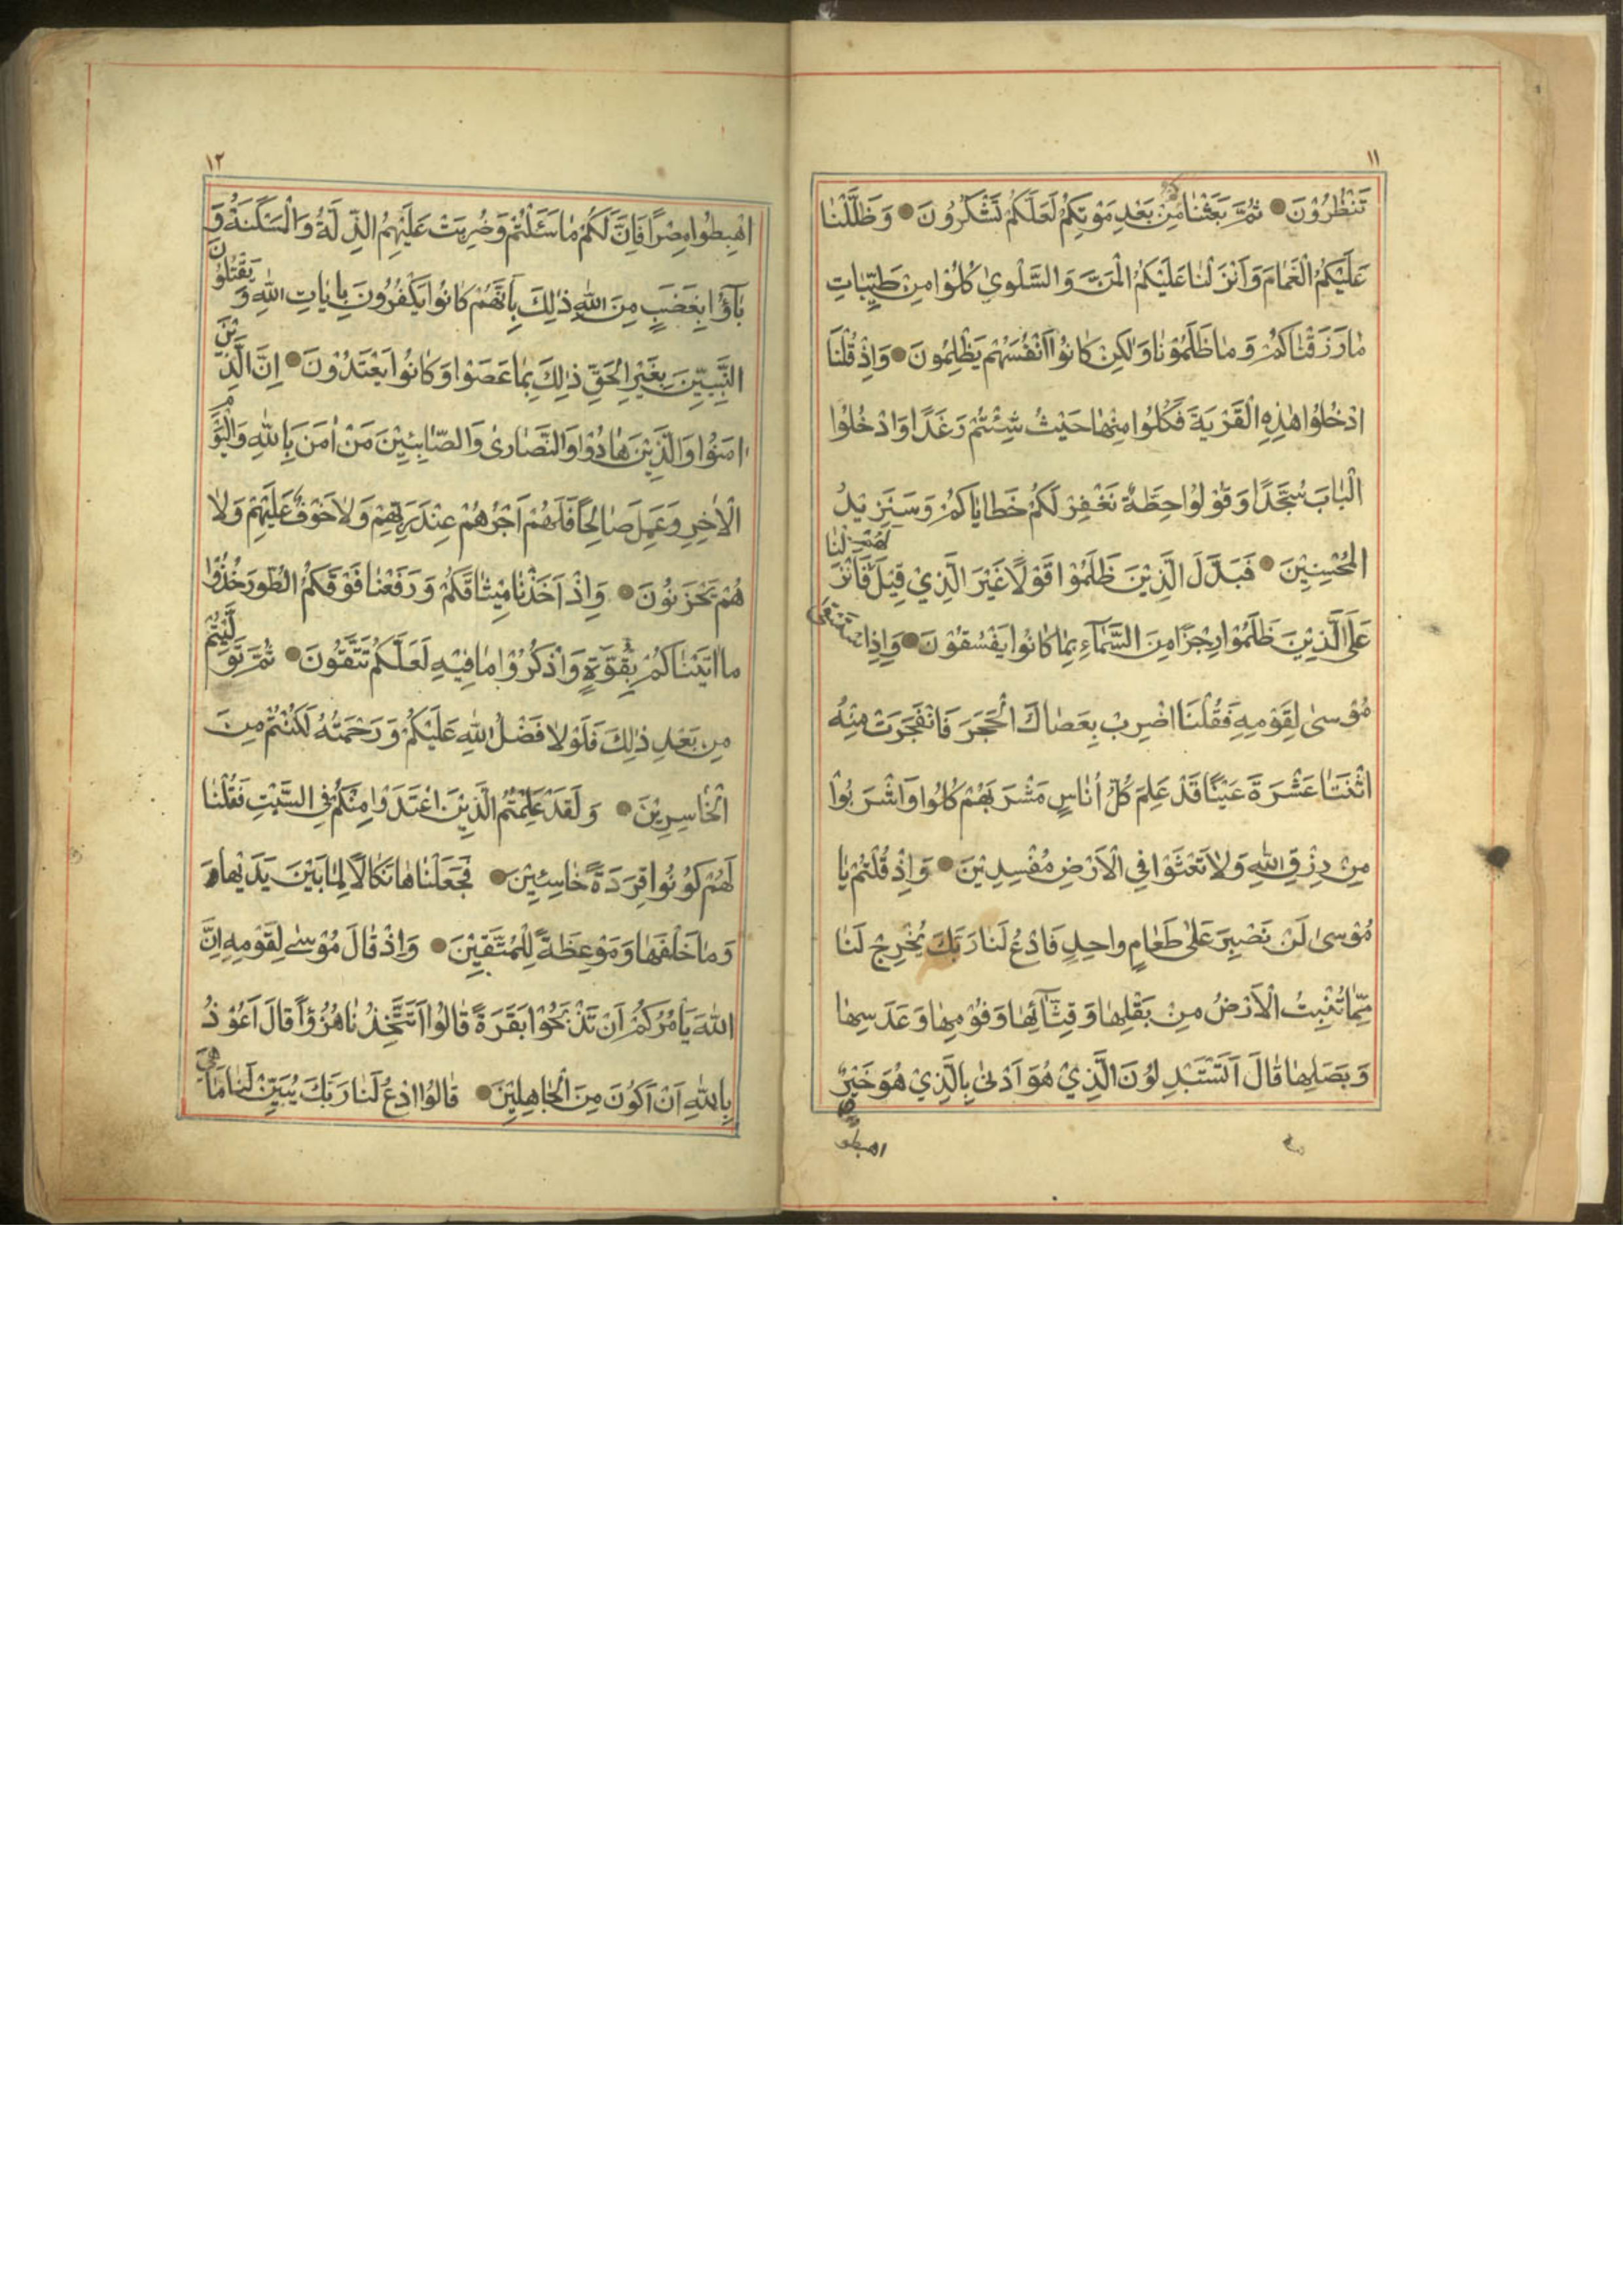 ١١
تَنْظُرُوْنَ ثُمَّ بَعَثْنٰا مِنْ بَعْدِ مَوْتِكُمْ لَعَلَّكُمْ تَشْكُرُونَ وَظَلَّلْنٰا
عَلَيْكُمُ الْغَمٰامَ وَاَنْزَلْنٰا عَلَيْكُمُ الْمَنَّ وَالسَّلْوىٰ كُلُوْا مِنْ طَيِّبٰاتِ
مٰا رَزَقْنٰاكُمْ وَمٰا ظَلَمُوْنٰا وَلٰكِنْ كٰانُوْا اَنْفُسَهُمْ يَظْلِمُونَ وَاِذْ قُلْنَا
ادْخُلُوْا هٰذِهِ الْقَرْيَةَ فَكُلُوا مِنْهٰا حَيْثُ شِئْتُمْ رَغَدًا وَادْخُلُوا
الْبٰابَ سُجَّدًا وَقُوْلُوْا حِطَّةٌ نَغْفِرْ لَكُمْ خَطٰايٰاكُمْ وَسَنَزِيْدُ
الْمُحْسِنِيْنَ فَبَدَّلَ الَّذِيْنَ ظَلَمُوْا قَوْلًا غَيْرَ الَّذِيْ قِيْلَ لَهُمْ فَاَنْزَلْنٰا
عَلَى الَّذِيْنَ ظَلَمُوْا رِجْزًا مِنَ السَّمٰآءِ بِمٰا كٰانُوْا يَفْسُقُوْنَ وَاِذِ اسْتَسْقٰى
مُوْسىٰ لِقَوْمِهِ فَقُلْنَا اضْرِبْ بِعَصٰاكَ الْحَجَرَ فَانْفَجَرَتْ مِنْهُ
اثْنَتٰا عَشْرَةَ عَيْنًا قَدْ عَلِمَ كُلُّ اُنٰاسٍ مَشْرَبَهُمْ كُلُوْا وَاشْرَبُوْا
مِنْ رِزْقِ اللهِ وَلٰا تَعْثَوْا فِي الْاَرْضِ مُفْسِدِيْنَ وَاِذْ قُلْتُمْ يٰا
مُوْسىٰ لَنْ نَصْبِرَ عَلىٰ طَعٰامٍ واحِدٍ فَادْعُ لَنٰا رَبَّكَ يُخْرِجْ لَنٰا
مِمّٰا تُنْبِتُ الْاَرْضُ مِنْ بَقْلِهٰا وَقِثّٰآئِهٰا وَفُوْمِهٰا وَعَدَسِهٰا
وَبَصَلِهٰا قٰالَ اَتَسْتَبْدِلُوْنَ الَّذِيْ هُوَ اَدْنىٰ بِالَّذِيْ هُوَ خَيْرٌ
اهبطوا
١٢
اهْبِطُوا مِصْرًا فَاِنَّ لَكُمْ مٰا سَئَلْتُمْ وَضُرِبَتْ عَلَيْهِمُ الذِّلَّةُ وَالْمَسْكَنَةُ وَ
بٰآؤُا بِغَضَبٍ مِنَ اللهِ ذٰلِكَ بِاَنَّهُمْ كٰانُوْا يَكْفُرُوْنَ بِاٰيٰاتِ اللهِ وَيَقْتُلُوْنَ
النَّبِيّيْنَ بِغَيْرِ الْحَقِّ ذٰلِكَ بِمٰا عَصَوْا وَكٰانُوا يَعْتَدُوْنَ اِنَّ الَّذِيْنَ
اٰمَنُوْا وَالَّذِيْنَ هٰادُوْا وَالنَّصٰارىٰ وَالصّٰابِئِيْنَ مَنْ اٰمَنَ بِاللهِ وَالْيَوْمِ
الْاٰخِرِ وَعَمِلَ صٰالِحًا فَلَهُمْ اَجْرُهُمْ عِنْدَ رَبِّهِمْ وَلٰا خَوْفٌ عَلَيْهِمْ وَلٰا
هُمْ يَحْزَنُوْنَ وَاِذْ اَخَذْنٰا مِيْثٰاقَكُمْ وَرَفَعْنٰا فَوْقَكُمُ الطُّورَ خُذُوْا
مٰا اٰتَيْنٰاكُمْ بِقُوَّةٍ وَاذْكُرُوْا مٰا فِيْهِ لَعَلَّكُمْ تَتَّقُونَ ثُمَّ تَوَلَّيْتُمْ
مِنْ بَعْدِ ذٰلِكَ فَلَوْلٰا فَضْلُ اللهِ عَلَيْكُمْ وَرَحْمَتُهُ لَكُنْتُمْ مِنَ
الْخٰاسِرِيْنَ وَلَقَدْ عَلِمْتُمُ الَّذِيْنَ اعْتَدَوْا مِنْكُمْ فِي السَّبْتِ فَقُلْنٰا
لَهُمْ كُوْنُوْا قِرَدَةً خٰاسِئِيْنَ فَجَعَلْنٰاهٰا نَكٰالًا لِمٰا بَيْنَ يَدَيْهٰا وَ
وَمٰا خَلْفَهٰا وَمَوْعِظَةً لِلْمُتَّقِيْنَ وَاِذْ قٰالَ مُوْسىٰ لِقَوْمِهِ اِنَّ
اللهَ يَاْمُرُكُمْ اَنْ تَذْبَحُوْا بَقَرَةً قٰالُوْا اَتَتَّخِذُنٰا هُزُوًا قٰالَ اَعُوْذُ
بِاللهِ اَنْ اَكُوْنَ مِنَ الْجٰاهِلِيْنَ قٰالُوْا ادْعُ لَنٰا رَبَّكَ يُبَيِّنْ لَنٰا مٰا هِيَ